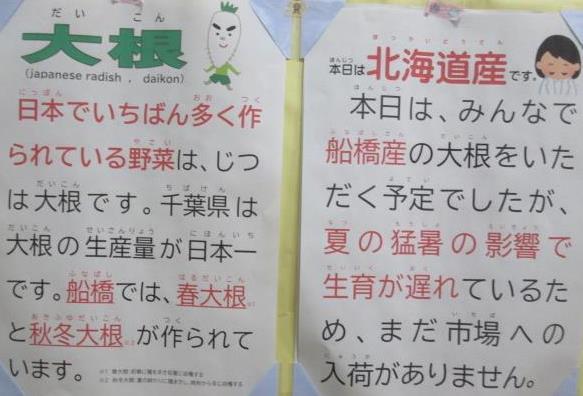 だいこん
大根
(japanese radish , daikon)
日本でいちばん多く作
られている野菜は、じつ
は大根です。千葉県は
大根の生産量が日本一
です。船橋では、春大根※1
と秋冬大根※2が作られて
います。
本日は北海道産です。
本日は、みんなで
船橋産の大根をいた
だく予定でしたが、
夏の猛暑の影響で
生育が遅れているた
め、まだ市場への
入荷がありません。